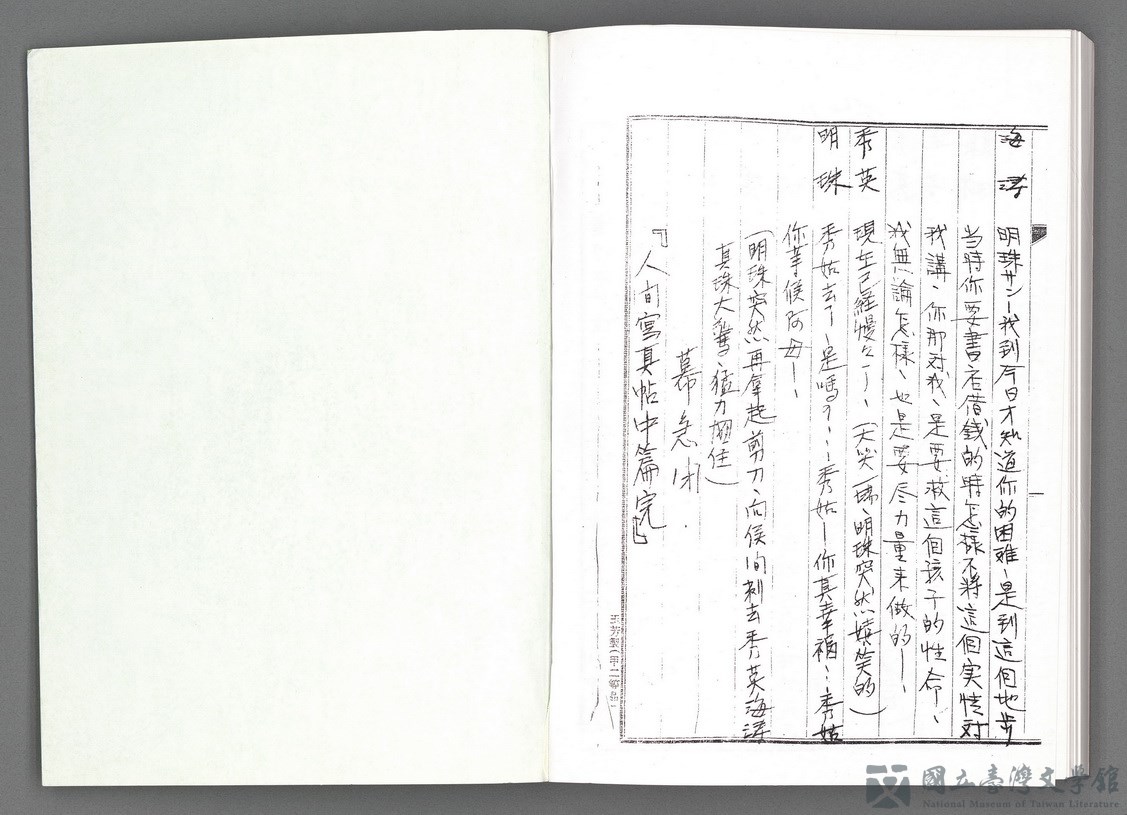 海澄 明珠サン—我到今日才知道你的困难—是到這個地步
当時你要書店借錢的時怎樣不將這個实情对
我講、你那对我、是要救這個孩子的性命、
我無論怎樣、也是要尽力量来做的—、
秀英 現在已經慢々—、(大笑一場、明珠突然嬉笑的)
明珠 秀姑去了—是嗎?、、、秀姑—你真幸福、、秀姑
你等候阿母—、
(明珠突然再拿起剪刀、向侯间刺去秀英海澄
真珠大驚、猛力抱住)
幕急闭.
『人间寫真帖中篇完』
國立臺灣文學館
National Museum of Taiwan Literature